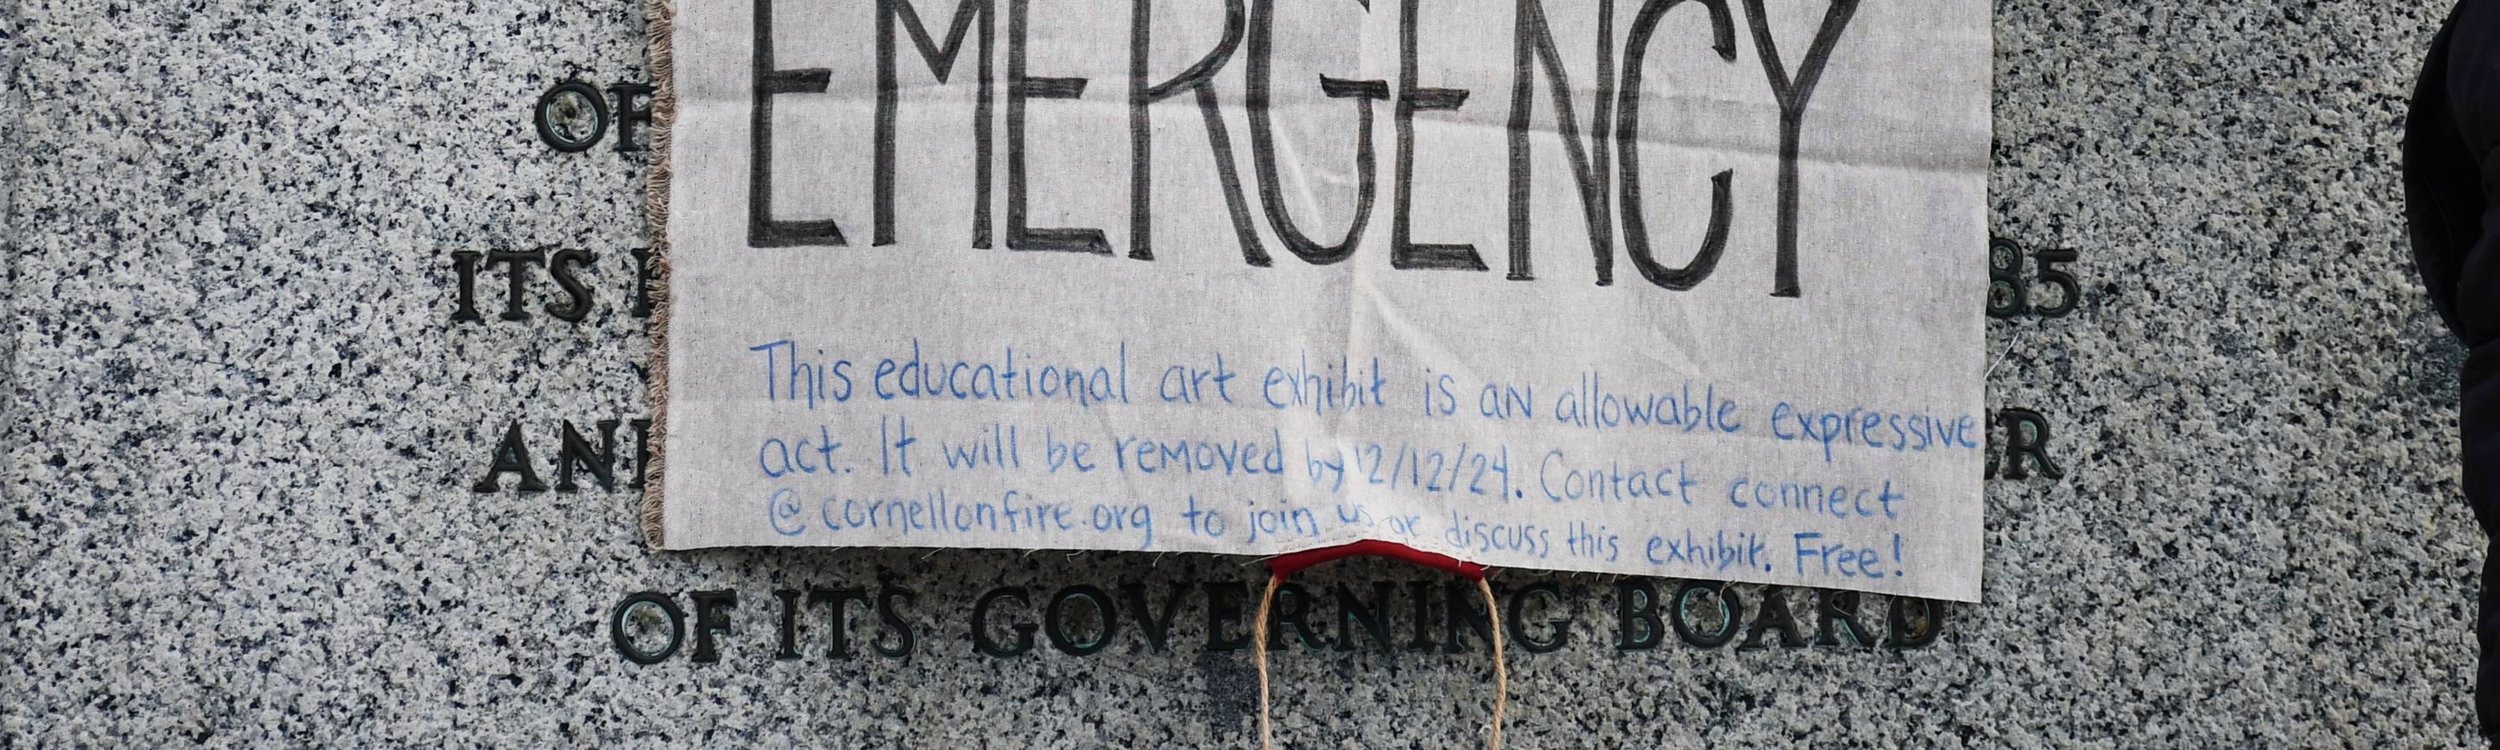 EMERGENCY
OF
ITS
85
This educational art exhibit is an allowable expressive
act. It will be removed by 12/12/24. Contact connect
@cornellonfire.org to join us or discuss this exhibit. Free!
AN
R
OF ITS GOVERNING BOARD